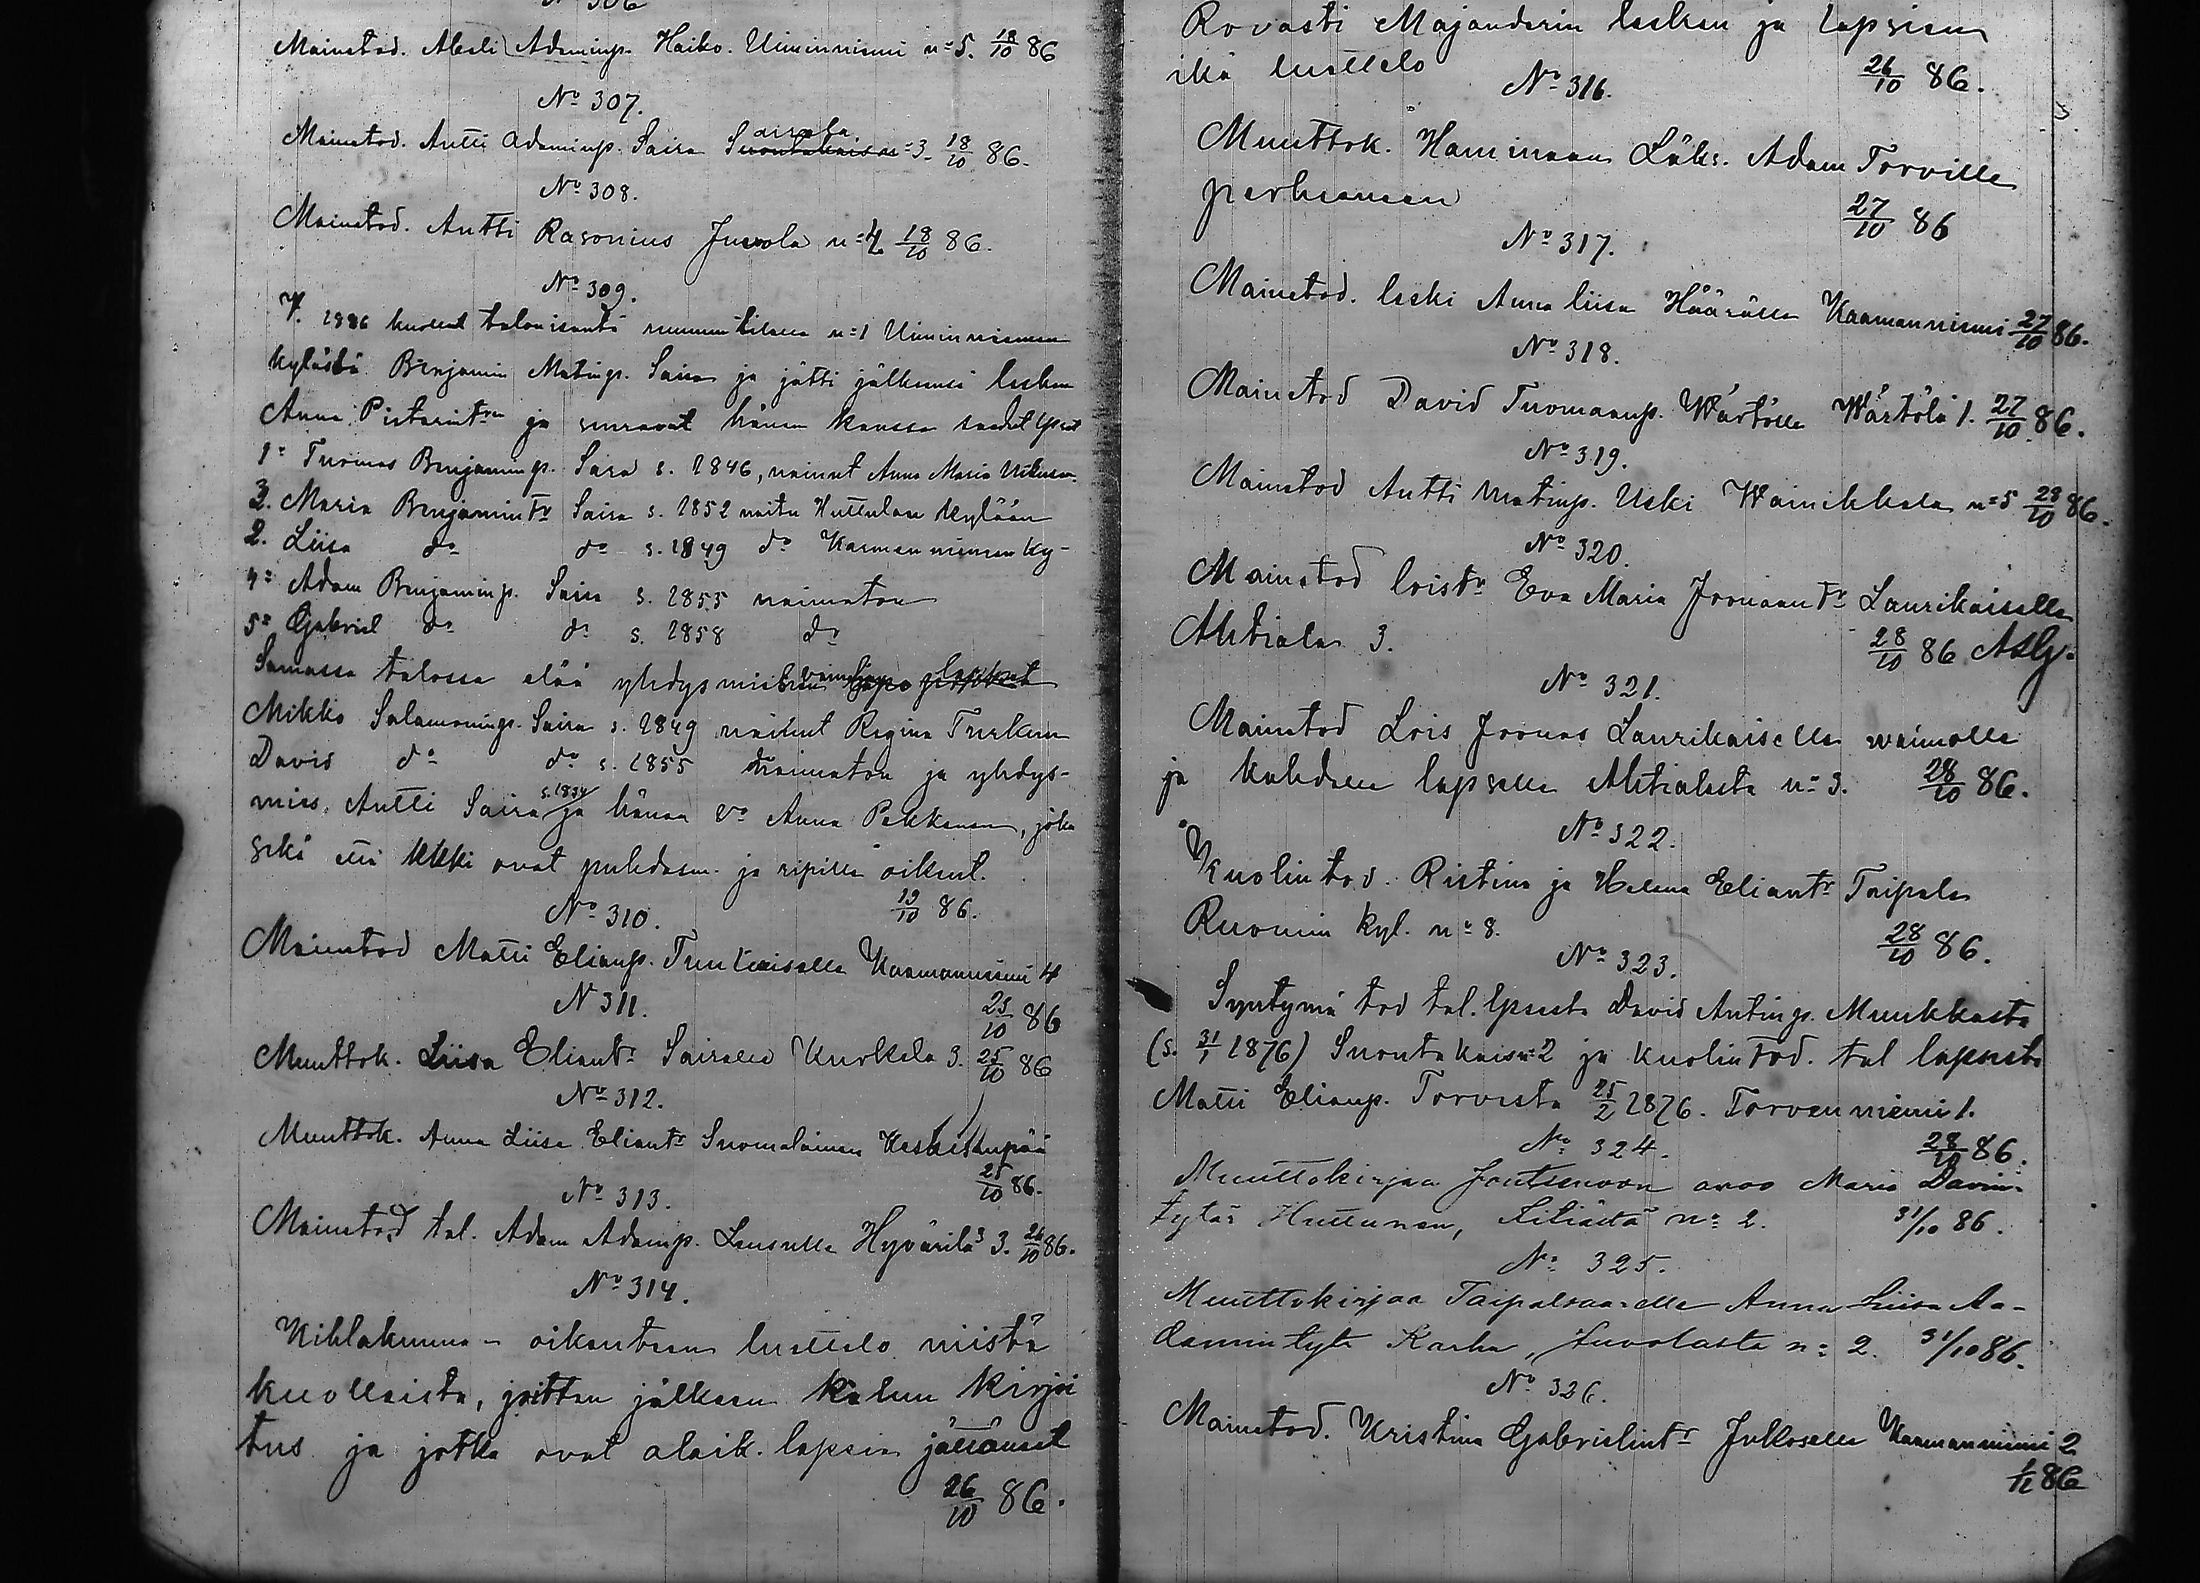 No 306
Mainetod. Abeli Adaminp. Haiko. Uiminniemi n=5. 18/10 86
No 307.
Mainetod. Antti Adaminp. Saira Suontakaisas=3. 18/10 86.
No 308.
Mainetod. Antti Rasonius Juvola n=4 18/10 86.
No 309.
V. 1886 kuollut talonisäntä tilalla n=1 Uiminniemen
kylästä Benjamin Matinp. Saira ja jätti jälkeensä lesken
Anna Pietarint ja seuraavat hänen kanssa saadut lpset
1= Tuomas Benjaminp. Saira s. 1846, nainut Anna Maria
3. Maria Benjamintr Saira s. 1852 naitu Huttulan kylään
2. Liisa do do s. 1849 do Kaamanniemen ky-
4= Adam Benjaminp. Saira s. 1855 naimaton
5= Gabriel do do s. 1858 do
Samassa talossa elää yhdysmiehen
Mikko Salamoninp. Saira s. 1849 nainut Regina Turkun
David do do s. 1855 naimaton ja yhdys-
mies. Antti Saira s. 1834 ja hänen vo Anna Pekkanen, jotka
sekä että kikki ovat puhdasm. ja ripille oikeut.
19/10 86.
No 310.
Mainetod Matti Elianp. Tuukaiselle Kaamanniemi 4
25/10 86
N 311.
Muuttok. Liisa Eliantr Sairalle Kurkela 3. 25/10 86
No 312.
Muuttok. Anna Liisa Eliantr Suomalainen
25/10 86.
No 313.
Mainetod tal. Adam Adamp. Lensulle Hyvärilä 3. 26/10 86.
No 314.
Kihlakunna- oikeuteen luettelo niistä
kuolleista, joitten jälkeen kalun kirjoi
tus ja jotka ovat alaik. lapsia jättäneet
26/10 86.
Rovasti Majanderin lesken ja lapsien
ikä luettelo 26/10 86.
No 316.
Muuttok. Haminaan Läks. Adam Torville
perheineen 27/10 86
No 317.
Mainetod. leski Anna liisa Häärälle Kaamanniemi 27/10 86.
No 318.
Mainetod David Tuomaanp. Wärtölle Wärtölä 1. 27/10 86.
No 319.
Mainetod Antti Matinp. Uski Wainikkala n=5 28/10 86.
No 320.
Mainetod loistr Eva Maria Joonaantr Laurikaiselle
Ahtiala 3. 28/10 86
No 321.
Mainetod Lois Joonas Laurikaiselle waimolle
ja kahdelle lapselle Ahtialasta n=3. 28/10 86.
No 322.
Kuolintod. Ristina ja Helena Eliantr Taipale
Ruomin kyl. no 8. 28/10 86.
No 323.
Syntymä tod tal. lpsesta David Antinp. Muukkasta
(s. 31/1 1876) Suontakais=2 ja kuolintod. tal lapsesta
Matti Elianp. Torvesta 25/2 1876. Torvenniemi 1.
28/10 86.
No 324.
Muuttokirjaa Joutsenoon anoo Maria Davin-
tytär Huttunen, n= 2. 31/10 86.
No 325.
Muuttokirjaa Taipalsaarelle Anna Liisa Aa-
damintytr Karhu, Juvolasta n= 2. 31/10 86.
No 326.
Mainetod. Kristina Gabrielintr Julkoselle Kaamanniemi 2
1/11 86